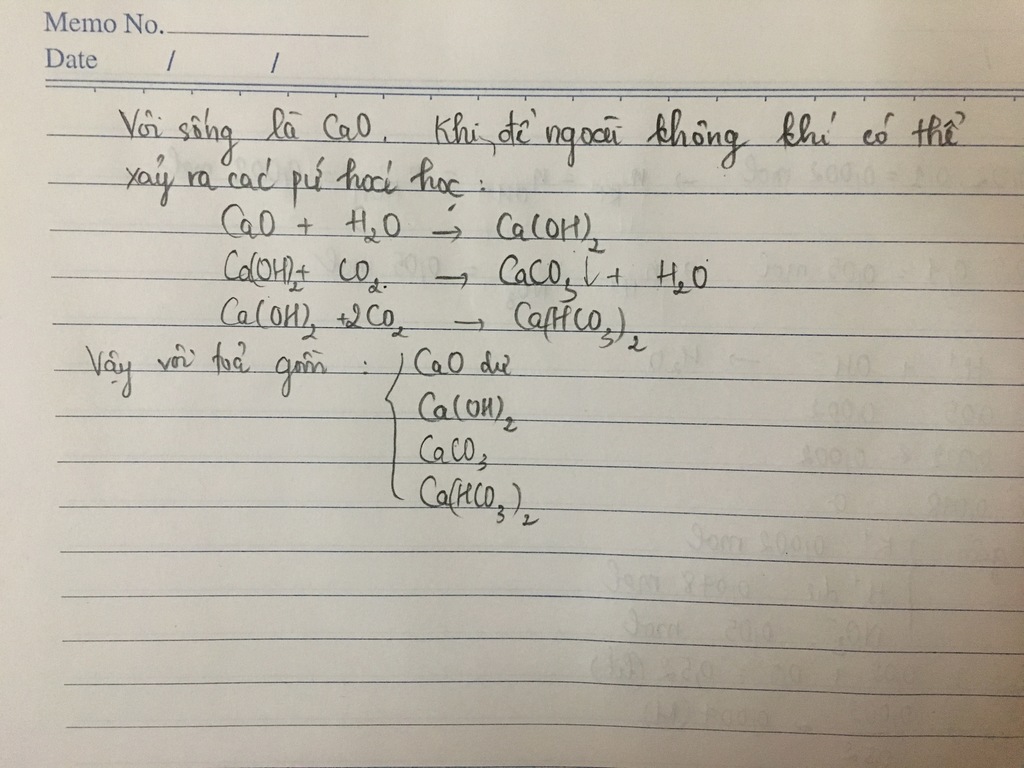 Memo No.
Date / /
Vôi sống là CaO. Khi để ngoài không khí có thể
xảy ra các pứ hoá học :
CaO + H₂O → Ca(OH)₂
Ca(OH)₂ + CO₂ → CaCO₃↓ + H₂O
Ca(OH)₂ + 2CO₂ → Ca(HCO₃)₂
Vậy vôi toả gồm : { CaO dư
Ca(OH)₂
CaCO₃
Ca(HCO₃)₂